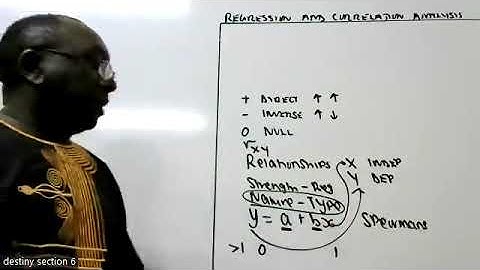 REGRESSION AND CORRELATION ANALYSIS
+ DIRECT ↑ ↑
- INVERSE ↑ ↓
0 NULL
rxy
Relationships X INDEP
Y DEP
Strength - Reg
Nature - Type
y = a + bx Spearmans
>1 0 1
destiny section 6